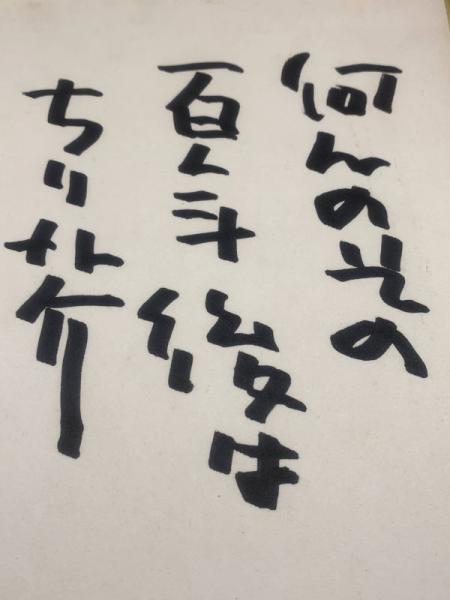 何んのその
百年後は
ちり芥